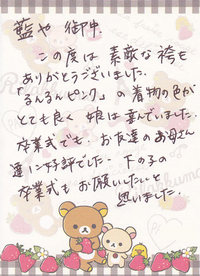 藍や 御中
この度は 素敵な袴を
ありがとうございました。
「るんるんピンク」の着物の色が
とても良く 娘は喜んでいました。
卒業式でも、お友達のお母さん
達に好評でした。下の子の
卒業式も お願いしたいと
思いました。